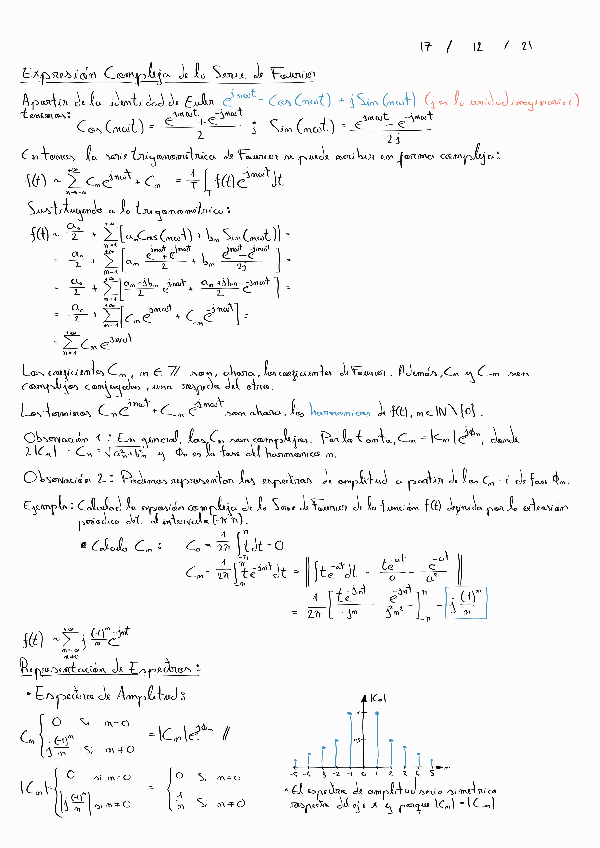 17 / 12 / 21
Expresión Compleja de la Serie de Fourier
A partir de la identidad de Euler e^{jnωt} = Cos(nωt) + j Sin(nωt) (j es la unidad imaginaria)
tenemos:
Cos(nωt) = (e^{jnωt} + e^{-jnωt})/2 ; Sin(nωt) = (e^{jnωt} - e^{-jnωt})/2j
Entonces la serie trigonométrica de Fourier se puede escribir en forma compleja:
f(t) ~ Σ_{n=-∞}^{+∞} C_n e^{jnωt} + C_n = 1/T ∫_T f(t) e^{-jnωt} dt
Sustituyendo a la trigonométrica:
f(t) ~ a_0/2 + Σ_{n=1}^{+∞} [a_n Cos(nωt) + b_n Sin(nωt)] =
= a_0/2 + Σ_{n=1}^{+∞} [a_n (e^{jnωt} + e^{-jnωt})/2 + b_n (e^{jnωt} - e^{-jnωt})/2j] =
= a_0/2 + Σ_{n=1}^{+∞} [(a_n - jb_n)/2 e^{jnωt} + (a_n + jb_n)/2 e^{-jnωt}] =
= a_0/2 + Σ_{n=1}^{+∞} [C_n e^{jnωt} + C_{-n} e^{-jnωt}] =
= Σ_{n=1}^{+∞} C_n e^{jnωt}
Los coeficientes C_n, n ∈ Z son, ahora, los coeficientes de Fourier. Además, C_n y C_{-n} son
complejos conjugados, uno respecto del otro.
Los terminos C_n e^{jnωt} + C_{-n} e^{-jnωt} son ahora, los harmonicos de f(t), n ∈ IN \ {0}.
Observación 1: En general, los C_n son complejos. Por lo tanto, C_n = |C_n| e^{jΦ_n}, donde
2|C_n| = C_n = √(a_n² + b_n²) y Φ_n es la fase del harmonico n.
Observación 2: Podemos representar los espectros de amplitud a partir de los C_n i de fase Φ_n.
Ejemplo: Calculad la expresión compleja de la Serie de Fourier de la función f(t) definida por la extensión
periodica del al intervalo [-π π).
• Calculo C_n: C_0 = 1/2π ∫_{-π}^{π} t dt = 0
C_n = 1/2π ∫_{-π}^{π} t e^{-jnt} dt = || ∫ t e^{-at} dt = t e^{-at}/a - e^{-at}/a² ||
= 1/2π [t e^{-jnt}/-jn - e^{-jnt}/j²n²]_{-π}^{π} = j (-1)^n/n
f(t) ~ Σ_{n=-∞, n≠0}^{+∞} j (-1)^n/n e^{-jnt}
Representación de Espectros:
• Espectro de Amplitud:
C_n { 0 Si n=0 = |C_n| e^{jΦ_n} //
j (-1)^n/n Si n≠0
|C_n| { 0 si n=0 = { 0 Si n=0
|j (-1)^n/n| si n≠0 1/n Si n≠0
|C_n|
1
0,5
-5 -4 -3 -2 -1 0 1 2 3 4 5
• El espectro de amplitud serio simetrico
respecto del eje y porque |C_n| = |C_{-n}|